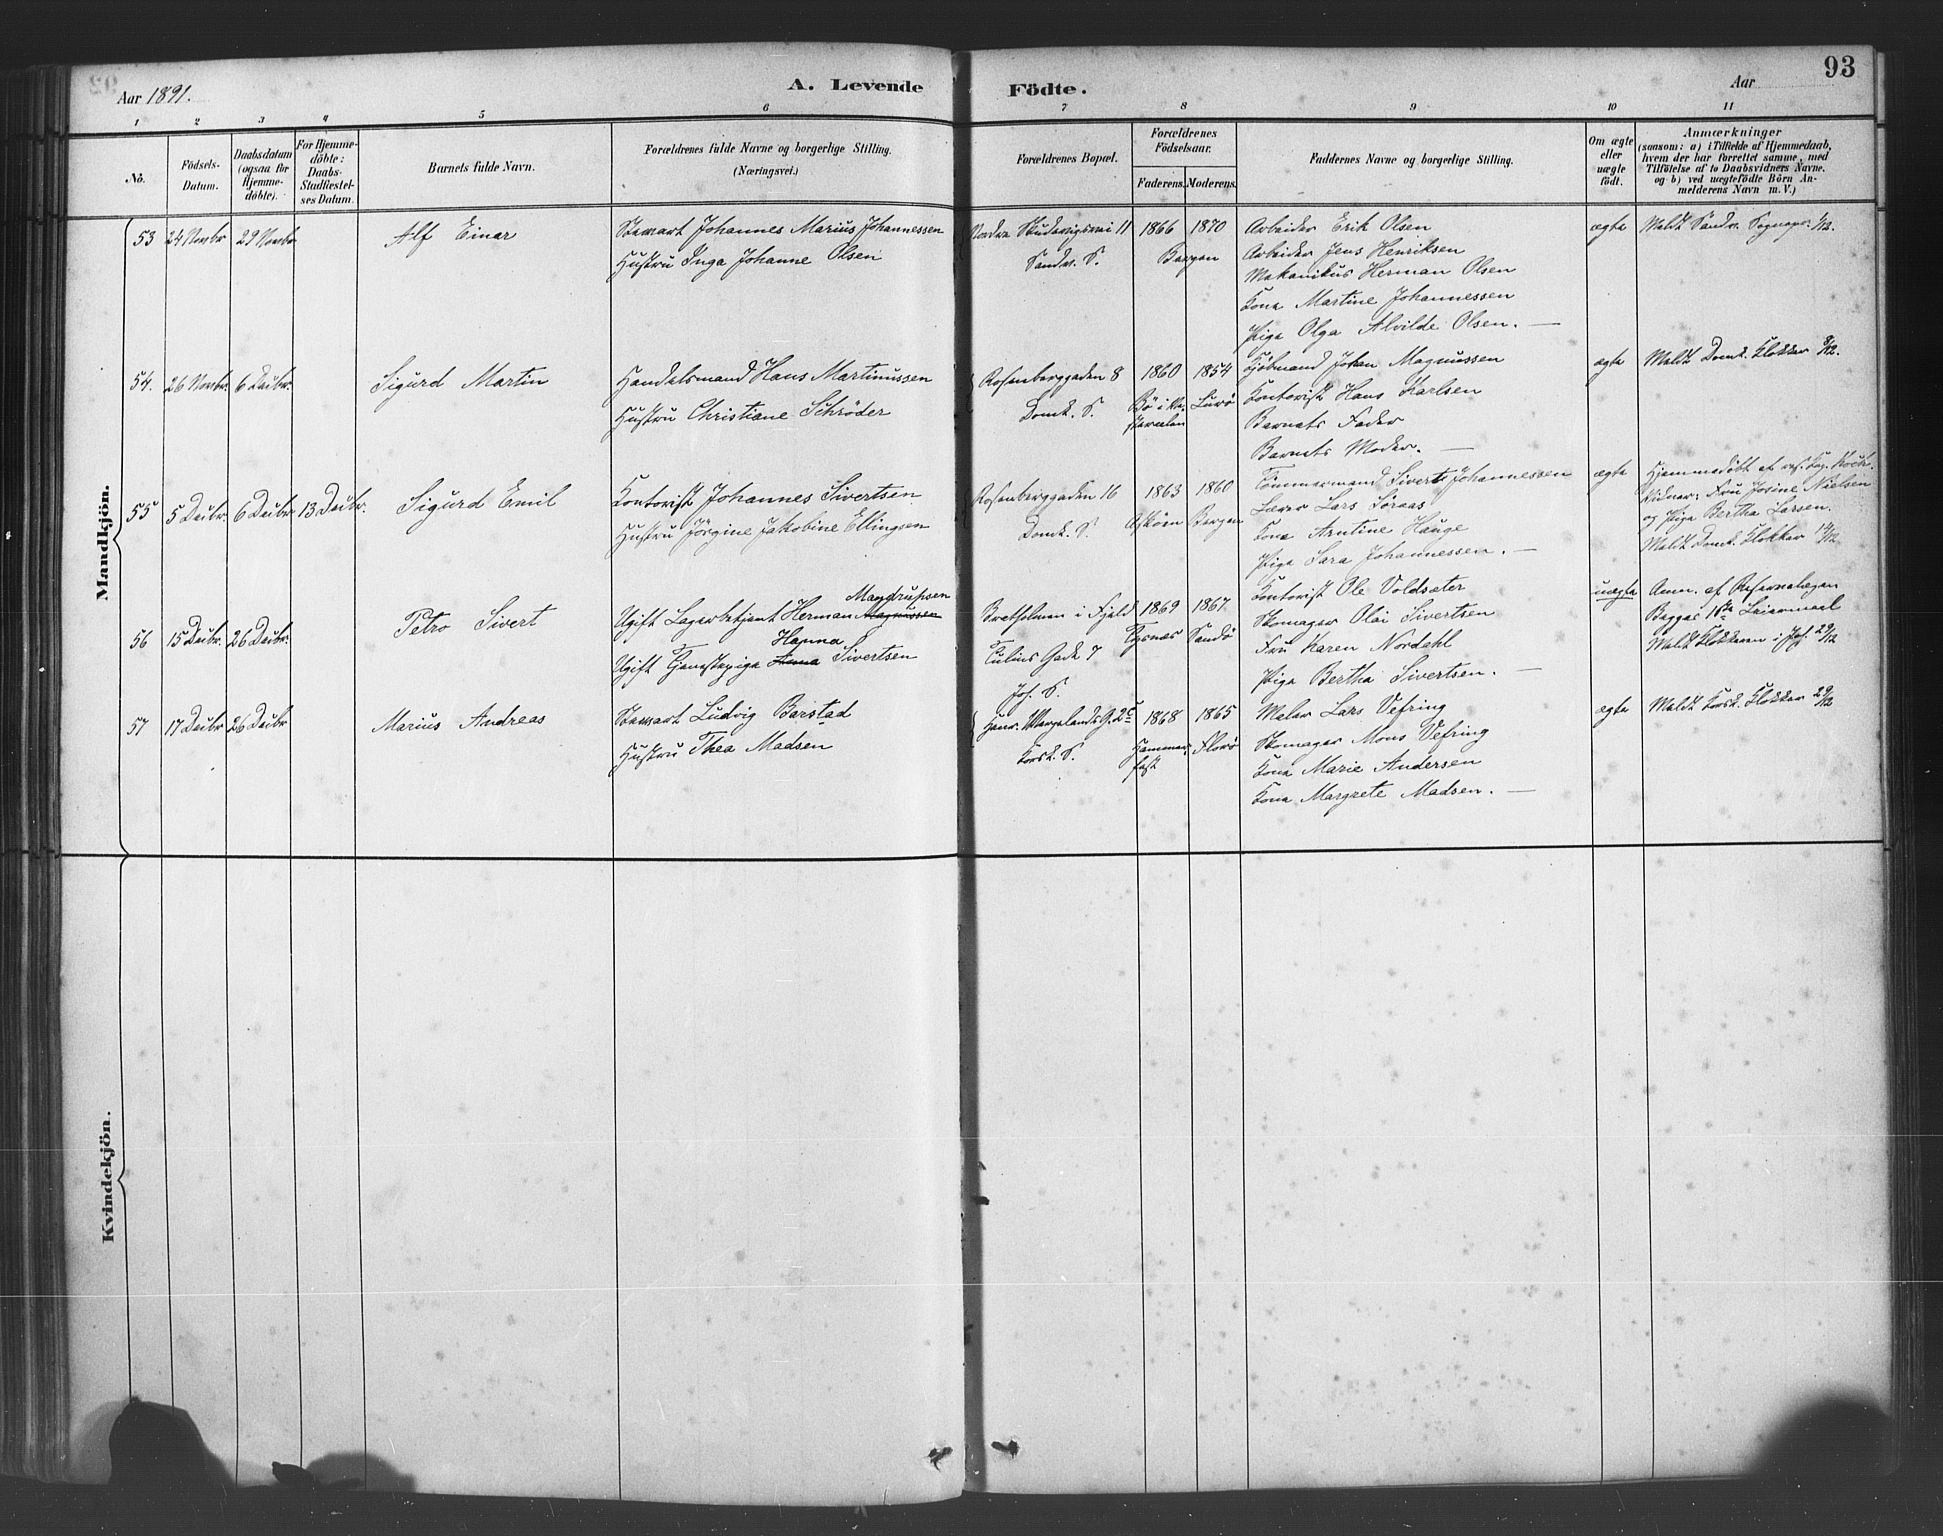 93
Aar 1891.
A. Levende Födte.
Aar
1 2 3 4 5 6 7 8 9 10 11
No.
Födsels-
Datum.
Daabsdatum
(ogsaa for
Hjemme-
döbte).
For Hjemme-
döbte:
Daabs-
Stadfæstel-
ses Datum.
Barnets fulde Navn.
Forældrenes fulde Navne og borgerlige Stilling.
(Næringsvei.)
Forældrenes Bopæl.
Forældrenes
Födselsaar.
Faderens. Moderens.
Faddernes Navne og borgerlige Stilling.
Om ægte
eller
uægte
födt.
Anmærkninger
(saasom: a) i Tilfælde af Hjemmedaab,
hvem der har forrettet samme, med
Tilföielse af to Daabsvidners Navne,
og b) ved uægtefödte Börn An-
melderens Navn m. V.)
Mandkjön.
53 24 Novbr 29 Novbr
Alf Einar
Stuert Johannes Marius Johannessen
Hustru Inga Johanne Olsen
Nordre Skudevigsvei 11
Sandv. S.
1866 1870
Bergen
Arbeider Erik Olsen
Arbeider Jens Henriksen
Mekanikus Herman Olsen
Kona Martine Johannessen
Pige Olga Alvilde Olsen. —
ægte
Meldt Sandv. Sognepr. 1/12.
54. 26 Novbr. 6 Decbr.
Sigurd Martin
Handelsmand Hans Martinussen
Hustru Christiane Schröder
Rosenberggaden 8
Domk. S.
1860 1854
Bö i Ve-
steraalen
Lurö
Kjöbmand Johan Magnussen
Kontorist Hans Karlsen
Barnets Fader
Barnets Moder. —
ægte
Meldt Domk. Klokker 8/12.
55 5 Decbr. 6 Decbr. 13 Decbr.
Sigurd Emil
Kontorist Johannes Sivertsen
Hustru Jörgine Jakobine Ellingsen
Rosenberggaden 16
Domk. S.
1863 1860
Askøen Bergen
Tömmermand Sivert Johannessen
Lærer Lars Söraas
Kona Arntine Hauge
Pige Sara Johannessen. —
ægte
Hjemmedöbt af res. Kap. Koch.
Vidner: Fru Josine Nielsen
og Pige Bertha Larsen.
Meldt Domk. Klokker 14/12
56 15 Decbr. 26 Decbr.
Petro Sivert
Mandrupsen
Ugift Lagerbetjent Herman Magnussen
Hanna
Ugift Tjenestepige Anna Sivertsen
i Fjeld
Tulius Gade 7
Joh. S.
1869 1867
Tysnæs Sandö
Kontorist Ole Voldsæter
Skomager Olai Sivertsen
Fru Karen Nordahl
Pige Bertha Sivertsen. —
uægte
Anm. af Reservelægen
Begges 1ste Leiermaal
Meldt Klokkeren i Joh. 29/12
57 17 Decbr 26 Decbr
Marius Andreas
Stuert Ludvig Barstad
Hustru Thea Madsen
Henr. Wergelands G. 2c
Korsk. S.
1868 1865
Hammer-
fest
Florö
Maler Lars Vefring
Skomager Mons Vefring
Kona Marie Andersen
Kona Margrete Madsen. —
ægte
Meldt Korsk. Klokker 29/12
Kvindekjön.